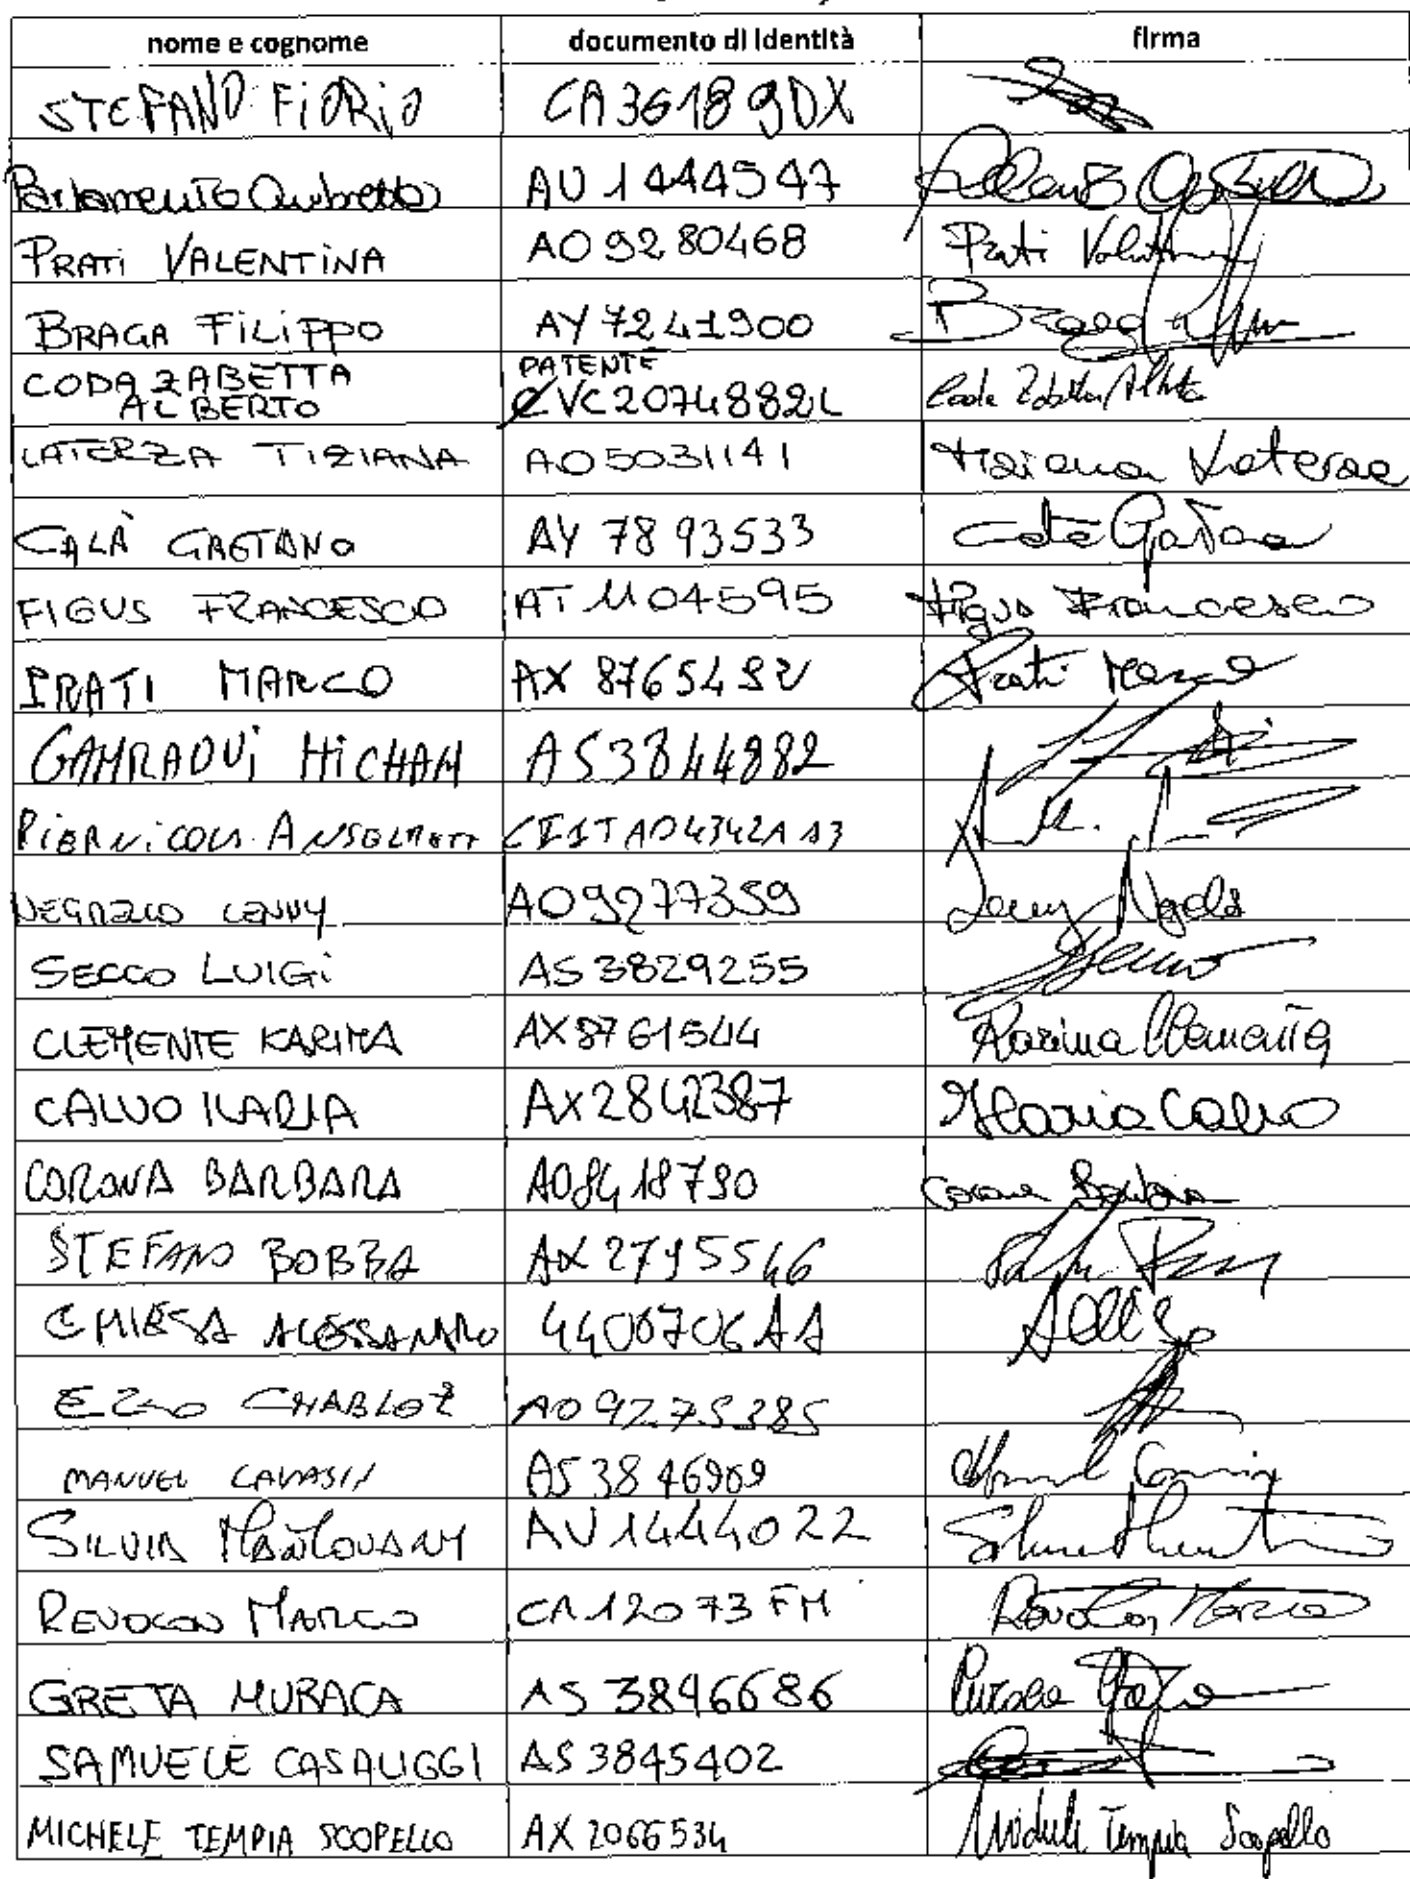 nome e cognome documento di identità firma
STEFANO FIORIO CA36189DX
Parlamento AU 1444547
PRATI VALENTINA AO 9280468 Prati Valentina
BRAGA FILIPPO AY 7241900 Braga
CODA ZABETTA PATENTE
ALBERTO VC2074882L Coda Zabetta Alberto
LATERZA TIZIANA AO 5031141 Tiziana Laterza
CALÀ GAETANO AY 7893533 Gaetano
FIGUS FRANCESCO AT 1104595 Figus Francesco
PRATI MARCO AX Prati Marco
GAMRAOUI HICHAM AS3844882
PIERNICOLA
LENNY AO9277359 Lenny
SECCO LUIGI AS 3829255 Secco
CLEMENTE KARIMA AX 8761544 Karima Clemente
CALVO ILARIA AX2842387 Ilaria Calvo
CORONA BARBARA AO8418790 Corona Barbara
STEFANO BOBBA AX 2795546
CHIESA ALESSANDRO 4400706AA
EZIO CHABLOZ AO 9275385
MANUEL CAVASIN AS 3846909 Manuel
SILVIA MANTOVANI AU 1444022 Silvia
REVOLON MARCO CA 12073 FM Revolon Marco
GRETA MURACA AS 3846686 Muraca Greta
SAMUELE CASALIGGI AS 3845402
MICHELE TEMPIA SCOPELLO AX 2066534 Michele Tempia Scopello